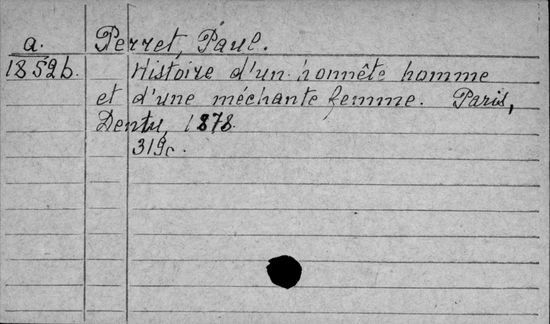 a. Perret, Paul.
1852b. Histoire d'un honnête homme
et d'une méchante femme. Paris,
Dentu, 1878.
319c.